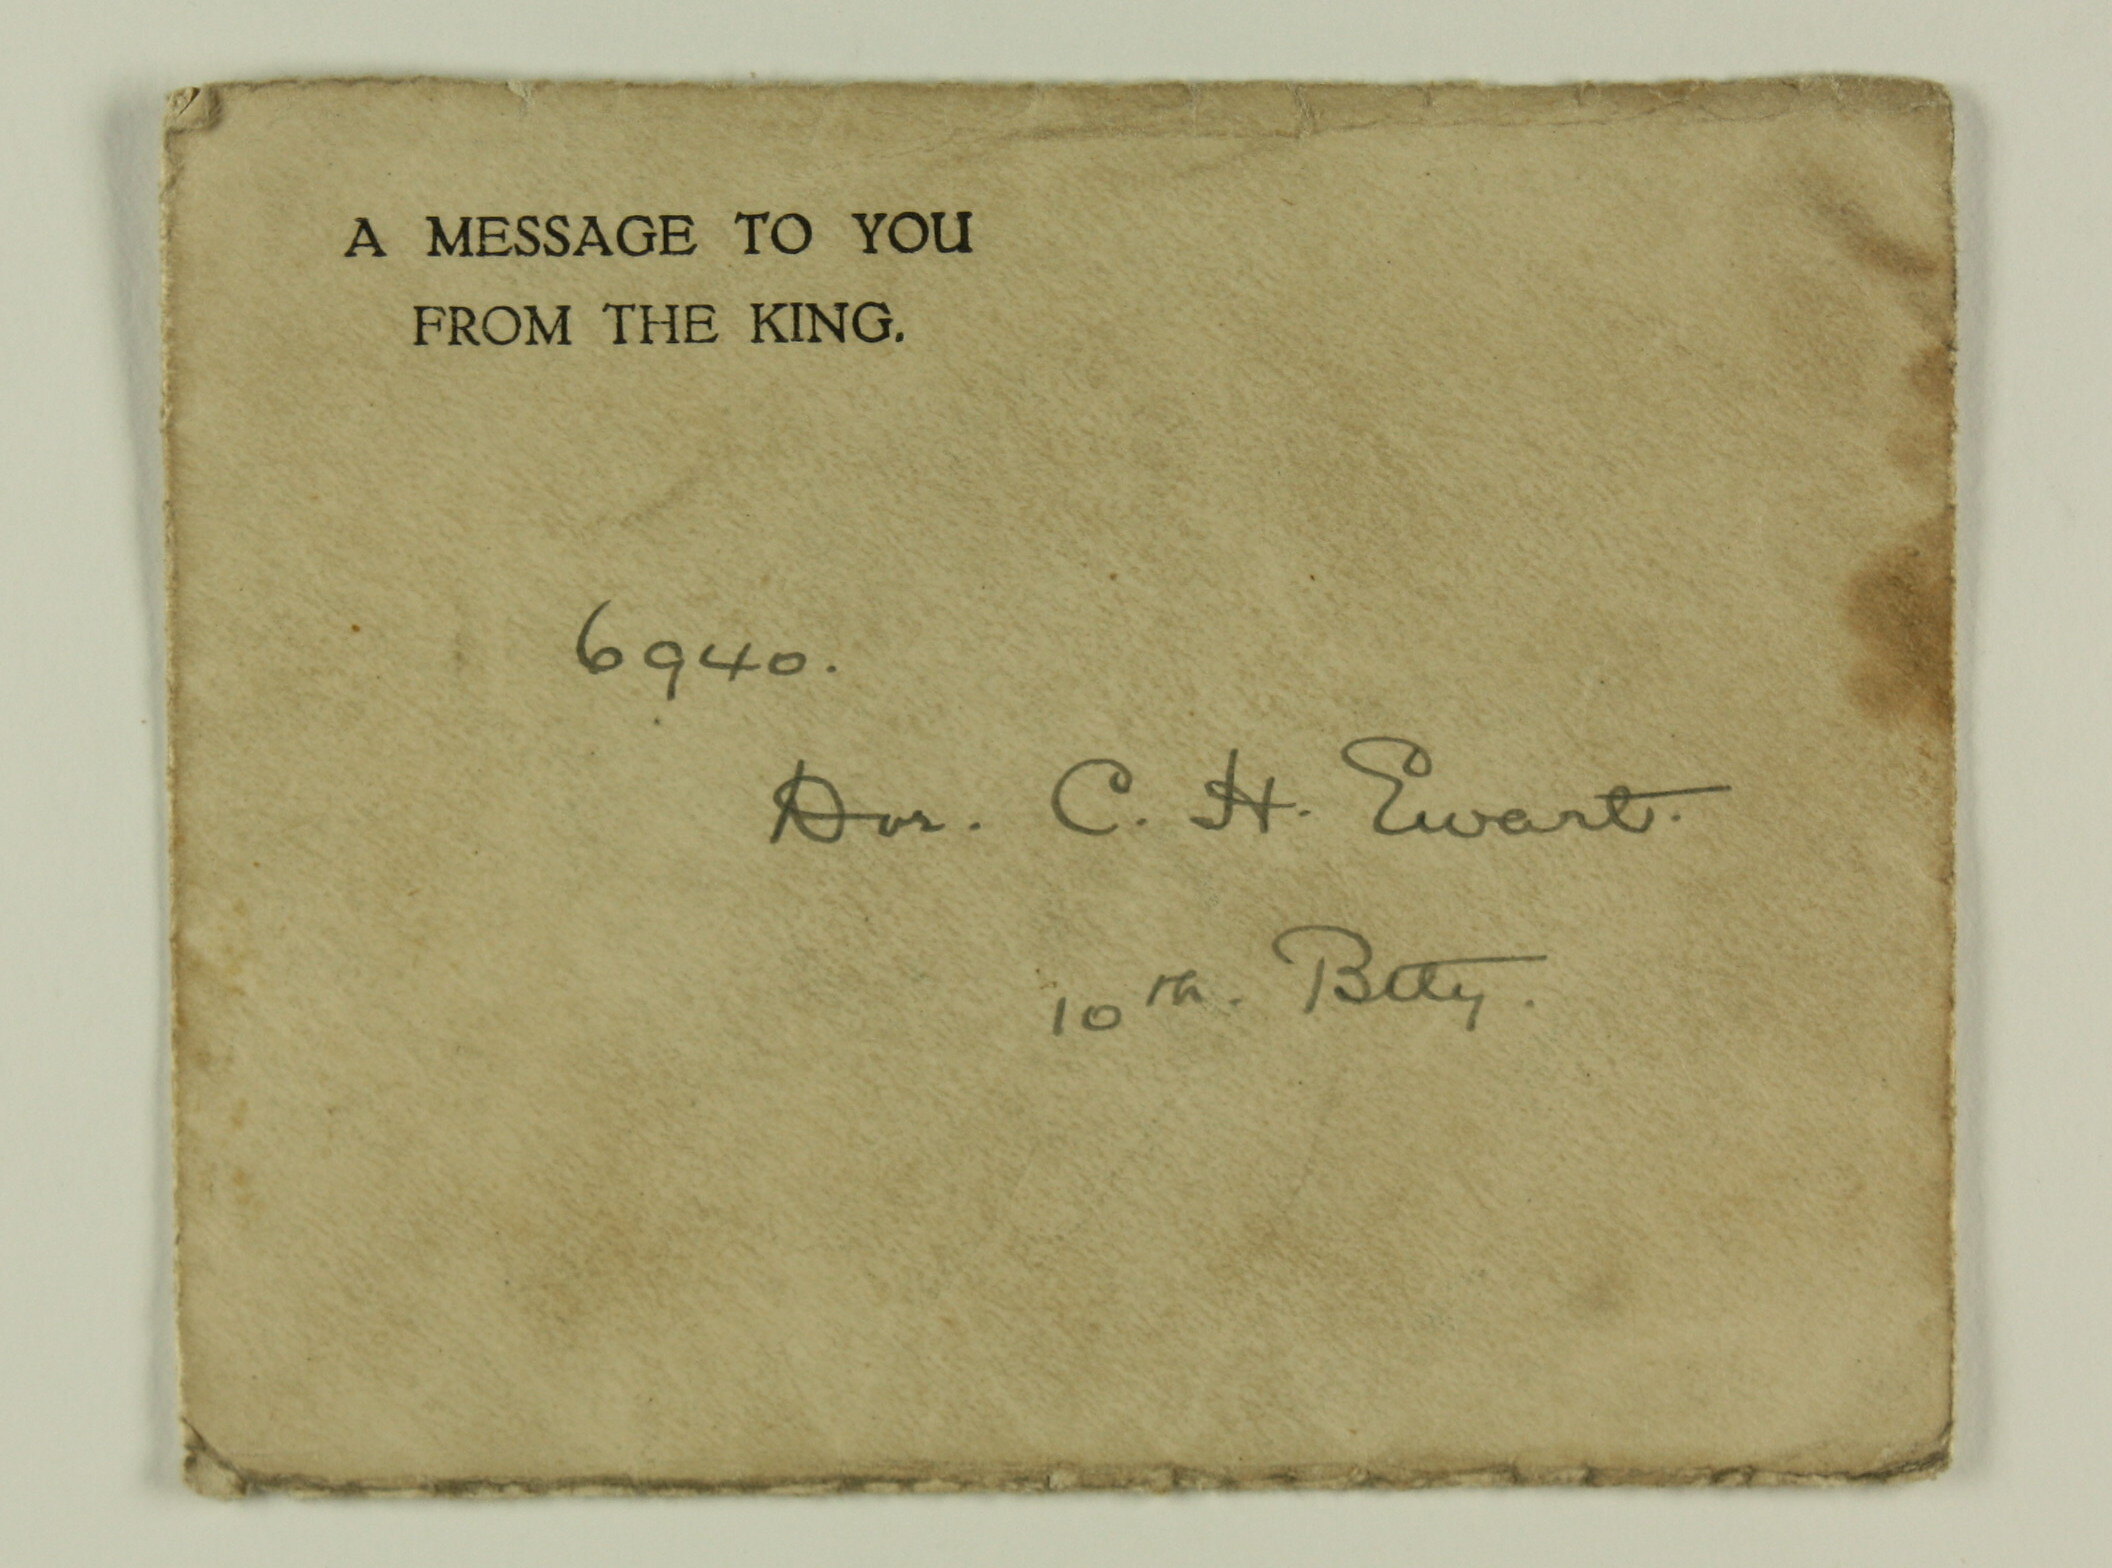 A MESSAGE TO YOU
FROM THE KING.
6940.
Dvr. C. H. Ewart.
10th. Btty.